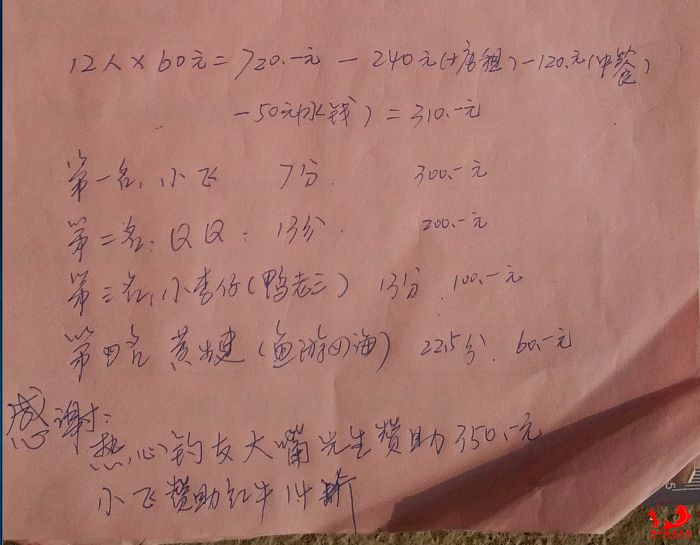 12人×60元=720.一元－240元(塘租)－120.元(中餐)
－50元(水钱)=310.一元
第一名:小飞 7分. 300.一元
第二名:QQ: 13分. 200.一元
第三名:小李仔(鸭老三) 13分. 100.一元
第四名 黄建(鱼游四海) 22.5分. 60.一元
感谢:
热心钓友大嘴先生赞助350.一元
小飞赞助红牛1件